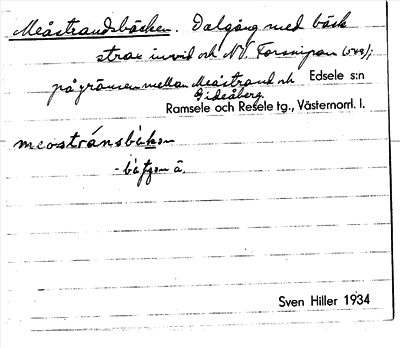 Meåstrandsbäcken. Dalgång med bäck
strax invid och NV. Forsnipan (543);
på gränsen mellan Meåstrand och Edsele s:n
Gideåberg.
Ramsele och Resele tg., Västernorrl. l.
meostránsbäkən
Sven Hiller 1934